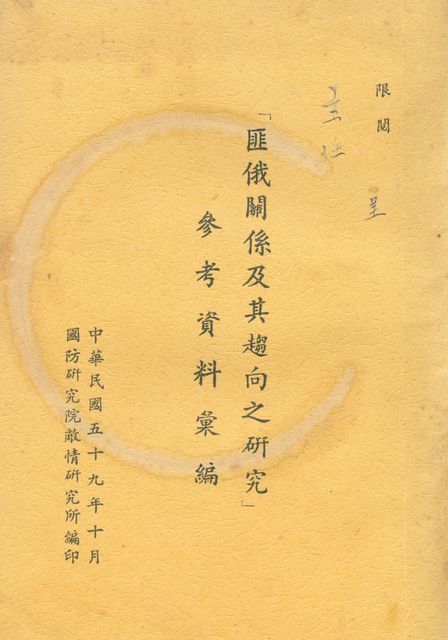 限閱
呈
「匪俄關係及其趨向之研究」
參考資料彙編
中華民國五十九年十月
國防研究院敵情研究所編印